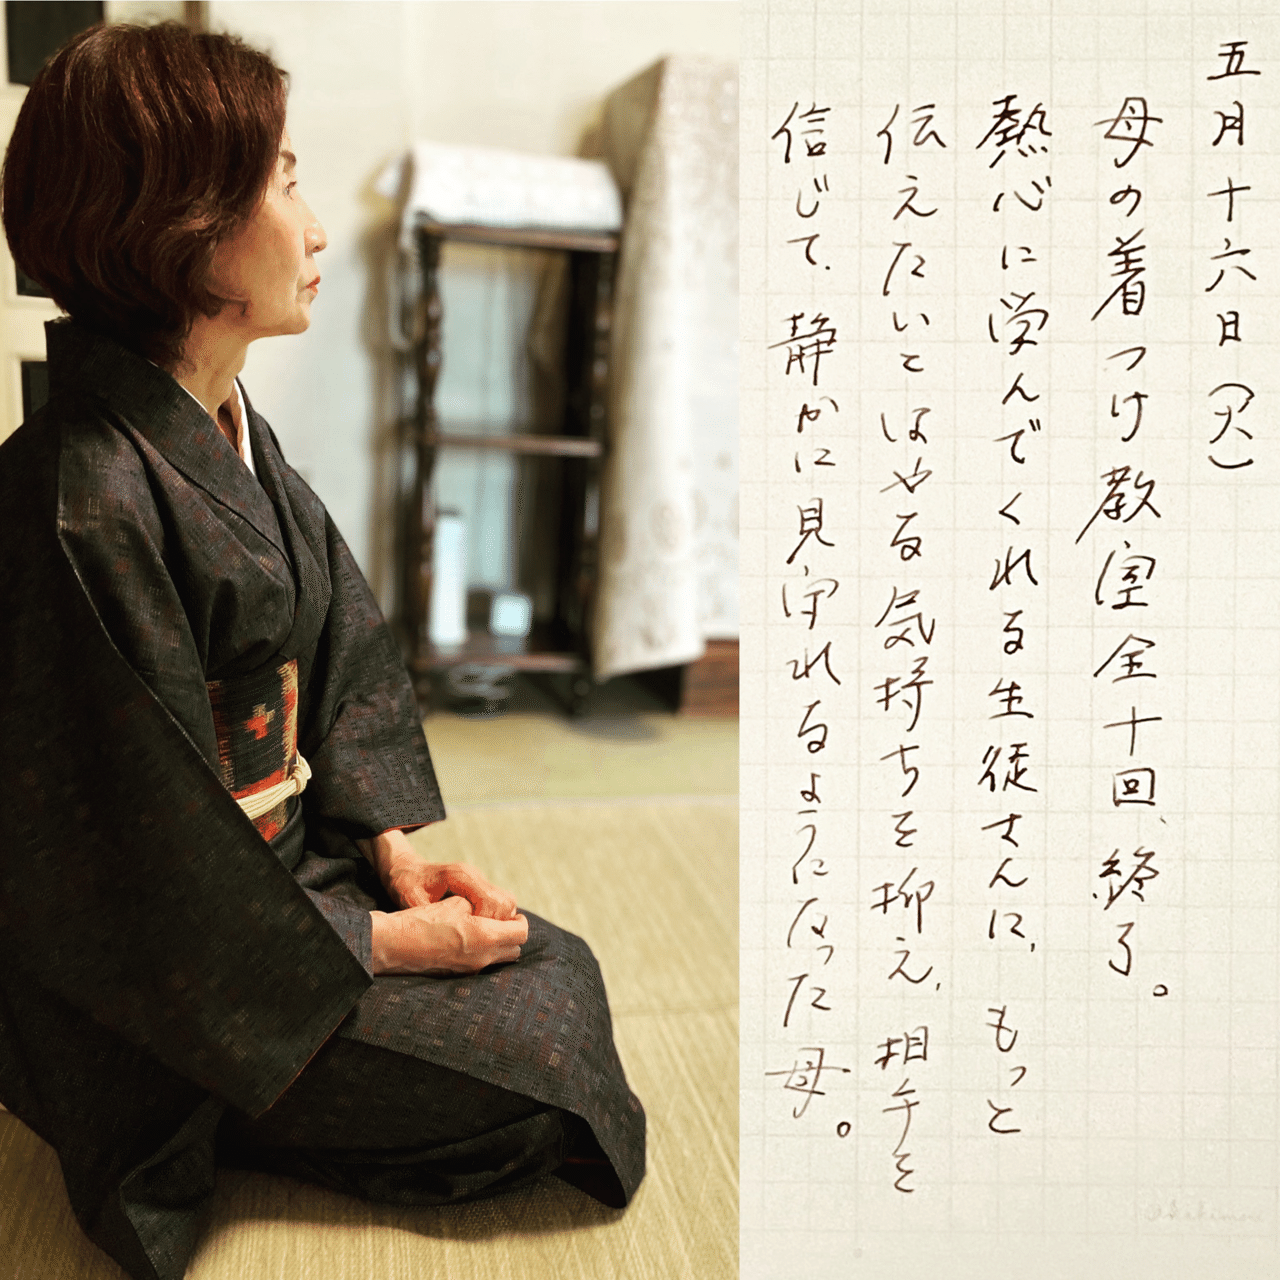 五月十六日(火)
母の着つけ教室全十回、終了。
熱心に学んでくれる生徒さんに、もっと
伝えたいとはやる気持ちを抑え、相手を
信じて、静かに見守れるようになった母。